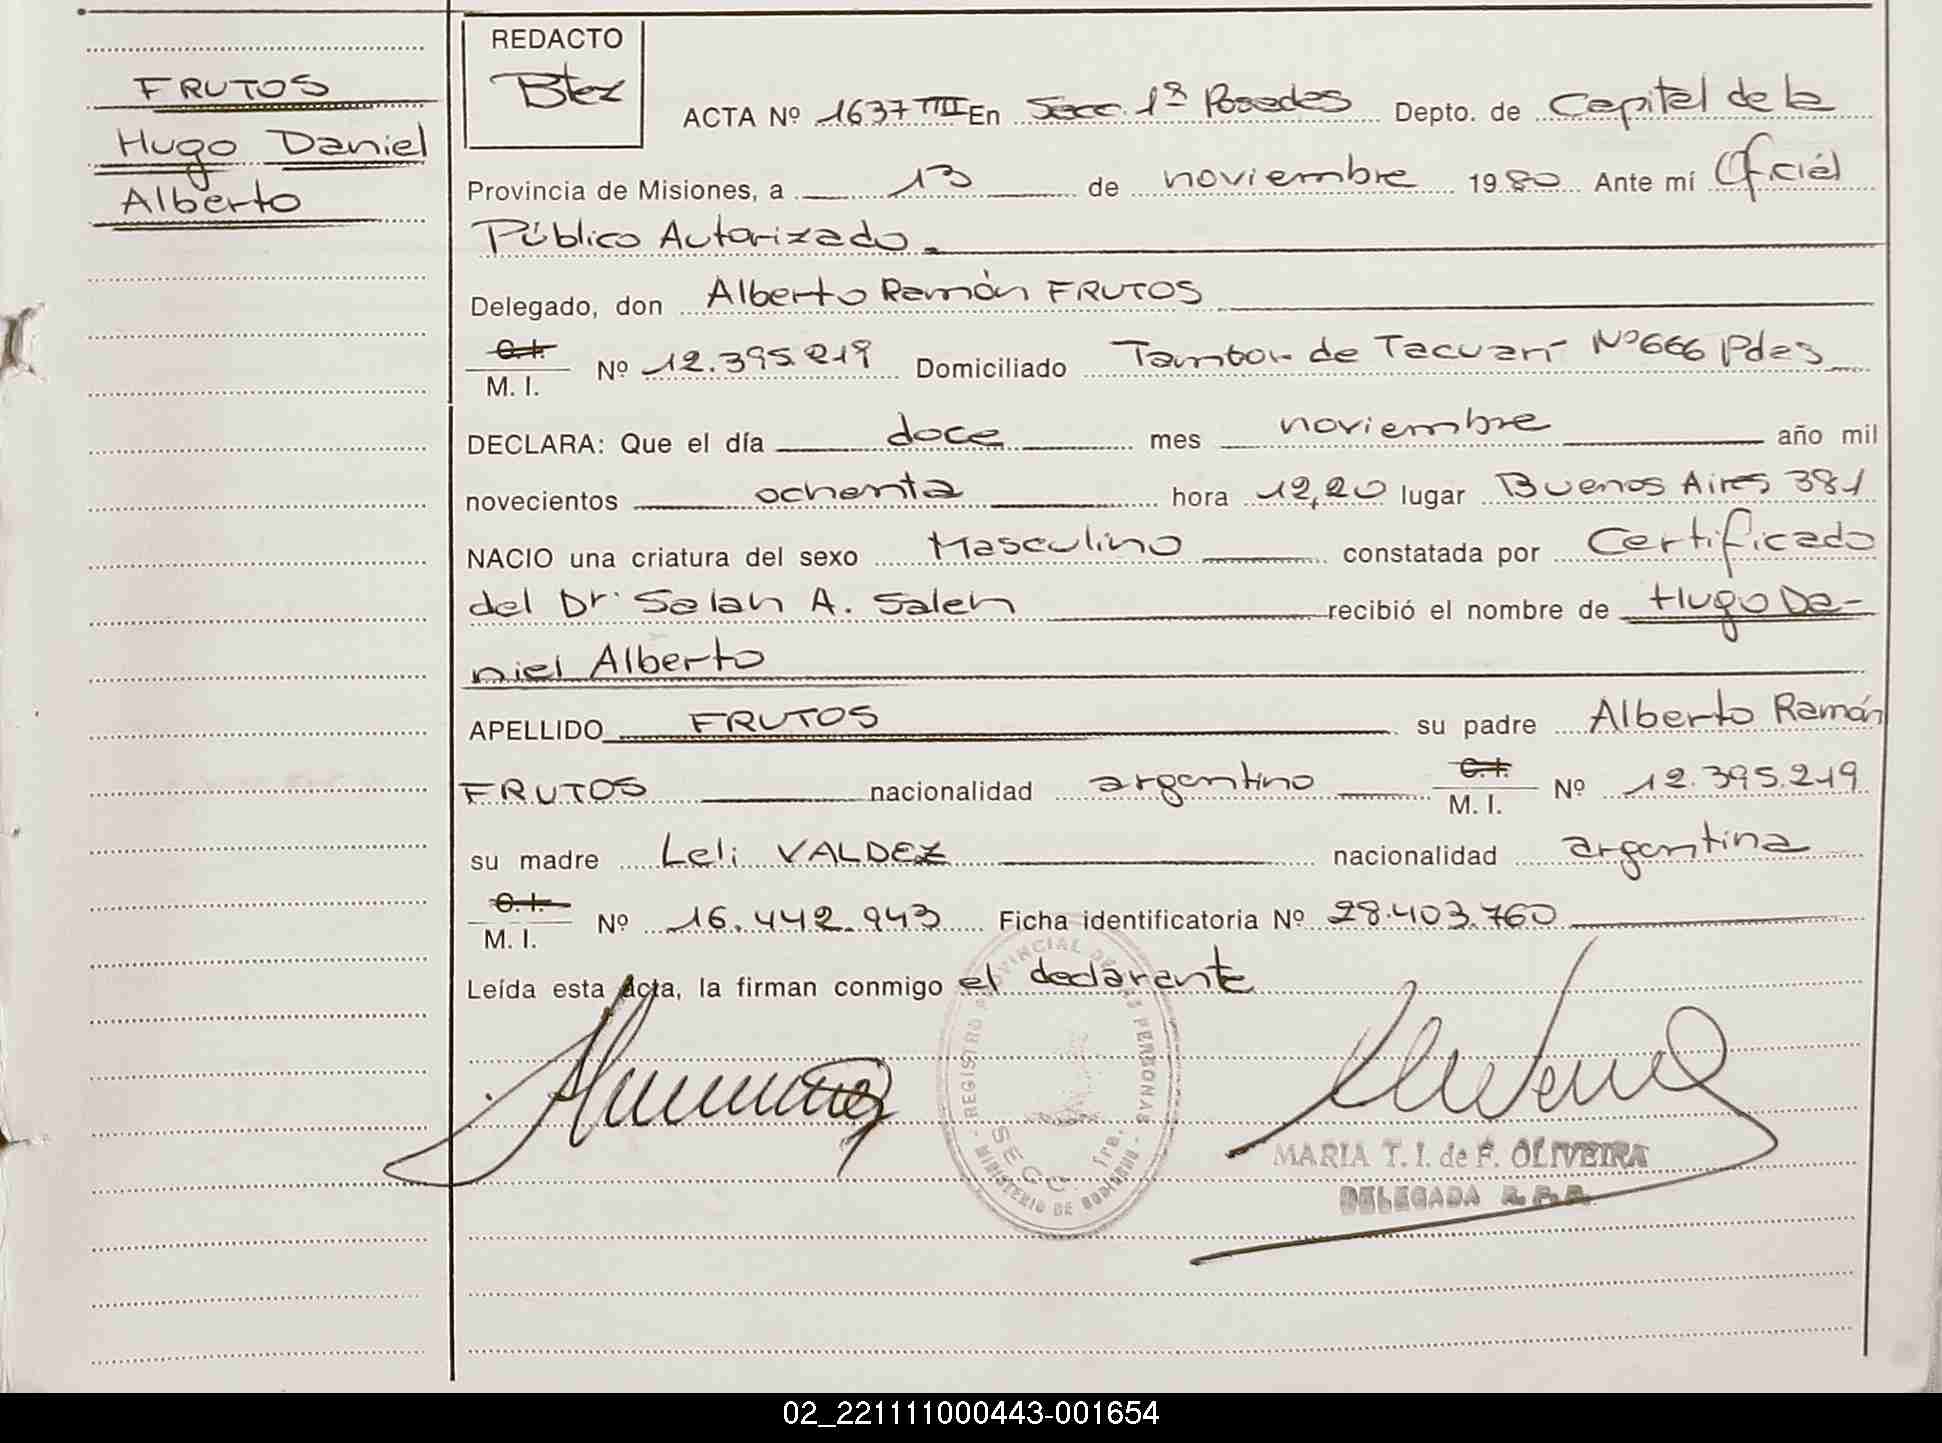 FRUTOS
Hugo Daniel
Alberto
REDACTO
Btez
ACTA Nº 1637 TIII En Secc. 1ª Posadas Depto. de Capital de la
Provincia de Misiones, a 13 de noviembre 1980 Ante mí Oficial
Público Autorizado.
Delegado, don Alberto Ramón FRUTOS
C.I.
M. I. Nº 12.395.219 Domiciliado Tambor de Tacuarí Nº 666 Pdas
DECLARA: Que el día doce mes noviembre año mil
novecientos ochenta hora 12,20 lugar Buenos Aires 381
NACIO una criatura del sexo Masculino constatada por Certificado
del Dr. Salah A. Saleh recibió el nombre de Hugo Da-
niel Alberto
APELLIDO FRUTOS su padre Alberto Ramón
FRUTOS nacionalidad argentino C.I. M. I. Nº 12.395.219
su madre Leli VALDEZ nacionalidad argentina
C.I.
M. I. Nº 16.442.943 Ficha identificatoria Nº 28.403.760
Leída esta acta, la firman conmigo el declarante
REGISTRO PROVINCIAL DE LAS PERSONAS
SECC. 1ra.
MINISTERIO DE GOBIERNO
MARIA T. I. de F. OLIVEIRA
DELEGADA R. P. P.
02_221111000443-001654